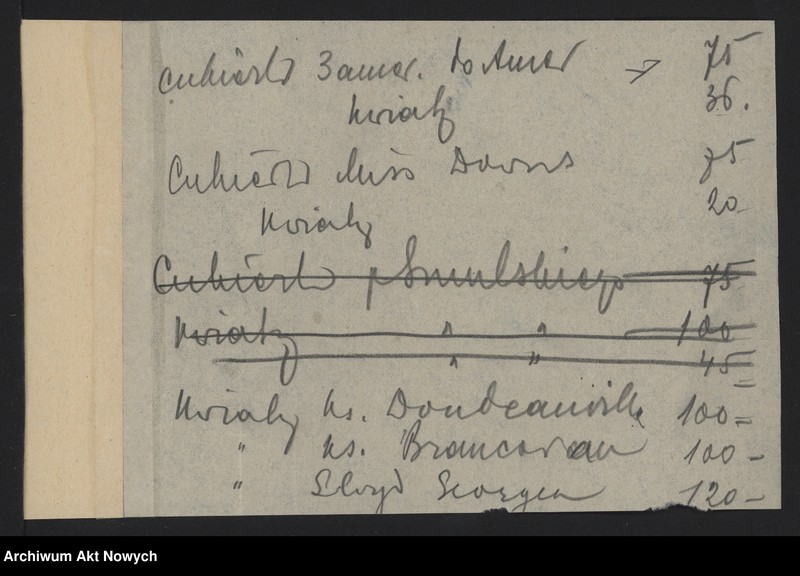 Cukierki 3 amer. do Amer 75
Kwiaty 36.
Cukierki Miss Downs 75
Kwiaty 20
Cukierki p Smulskiego 75
Kwiaty " " 100
" " 45
Kwiaty ks. Doudeauville 100
" ks. Brancovan 100
" Lloyd Georgea 120
Archiwum Akt Nowych